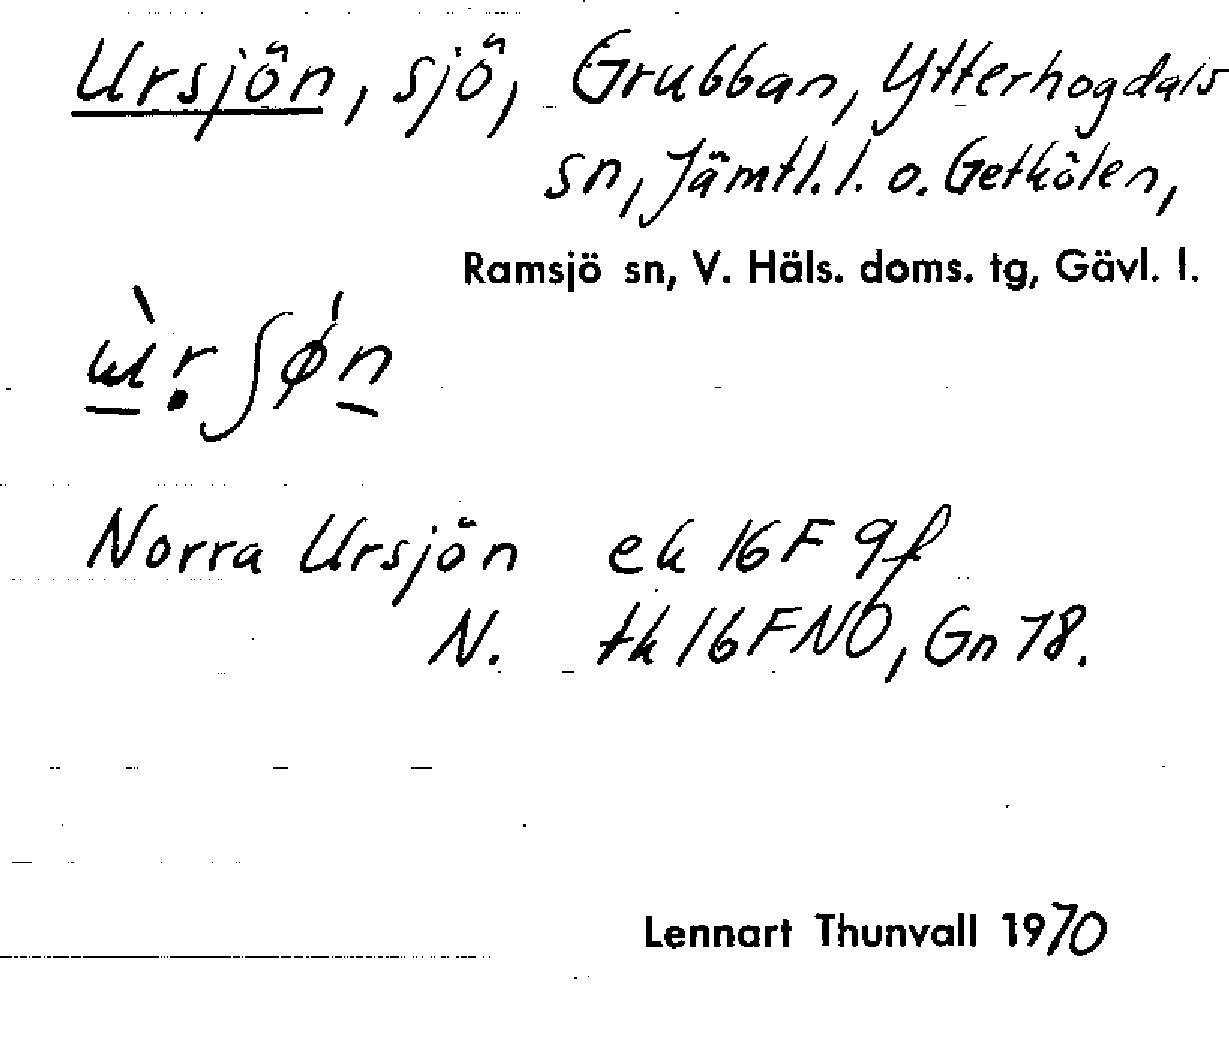 Ursjön, sjö, Grubban, Ytterhogdals
sn, Jämtl. l. o. Getkölen,
Ramsjö sn, V. Häls. doms. tg, Gävl. l.
Norra Ursjön ek 16F 9f
N. tk 16FNO, Gn 78.
Lennart Thunvall 1970